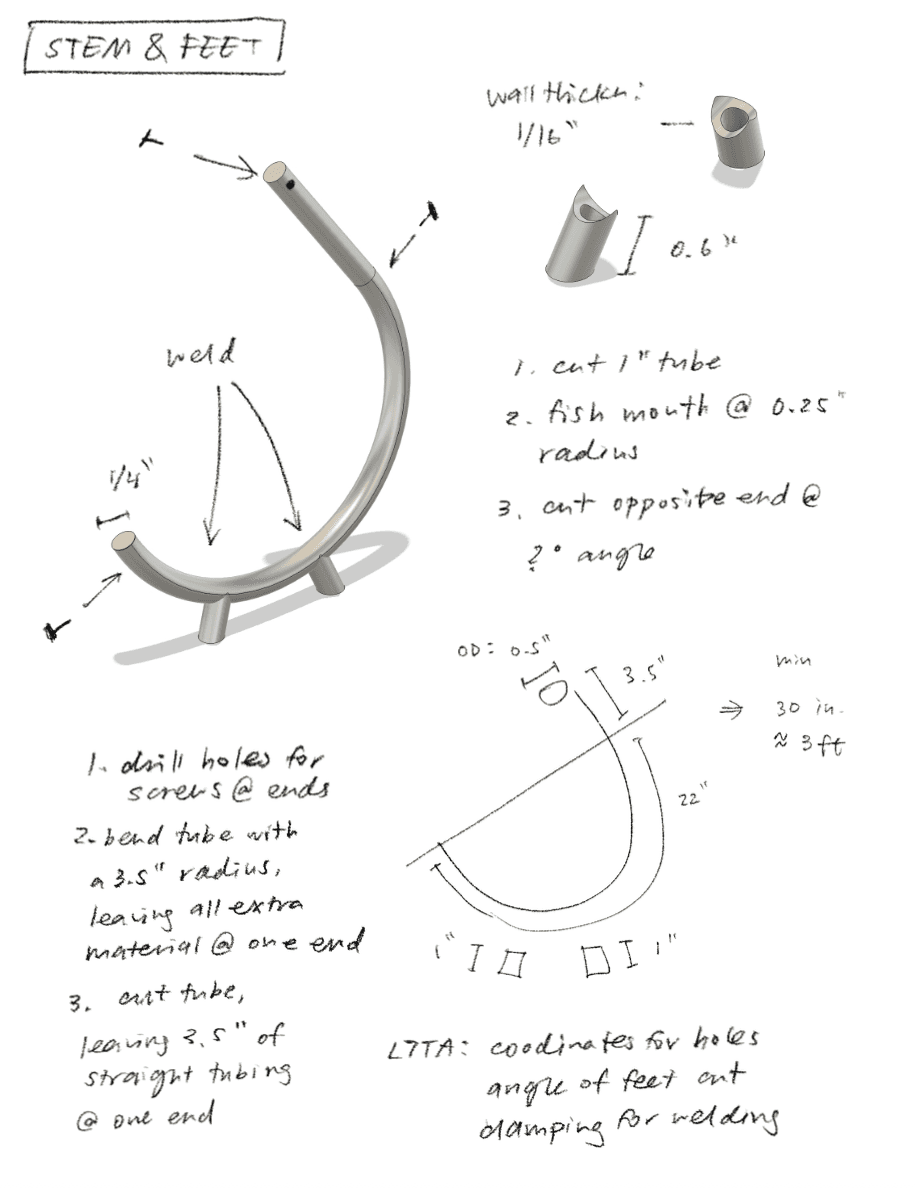 STEM & FEET
wall thickn:
1/16"
0.6"
weld
1/4"
1. cut 1" tube
2. fish mouth @ 0.25"
radius
3. cut opposite end @
?° angle
OD: 0.5"
3.5"
min
⇒ 30 in.
≈ 3 ft
22"
1"
1"
1. drill holes for
screws @ ends
2. bend tube with
a 3.5" radius,
leaving all extra
material @ one end
3. cut tube,
leaving 3.5" of
straight tubing
@ one end
LTTA: coodinates for holes
angle of feet cut
clamping for welding